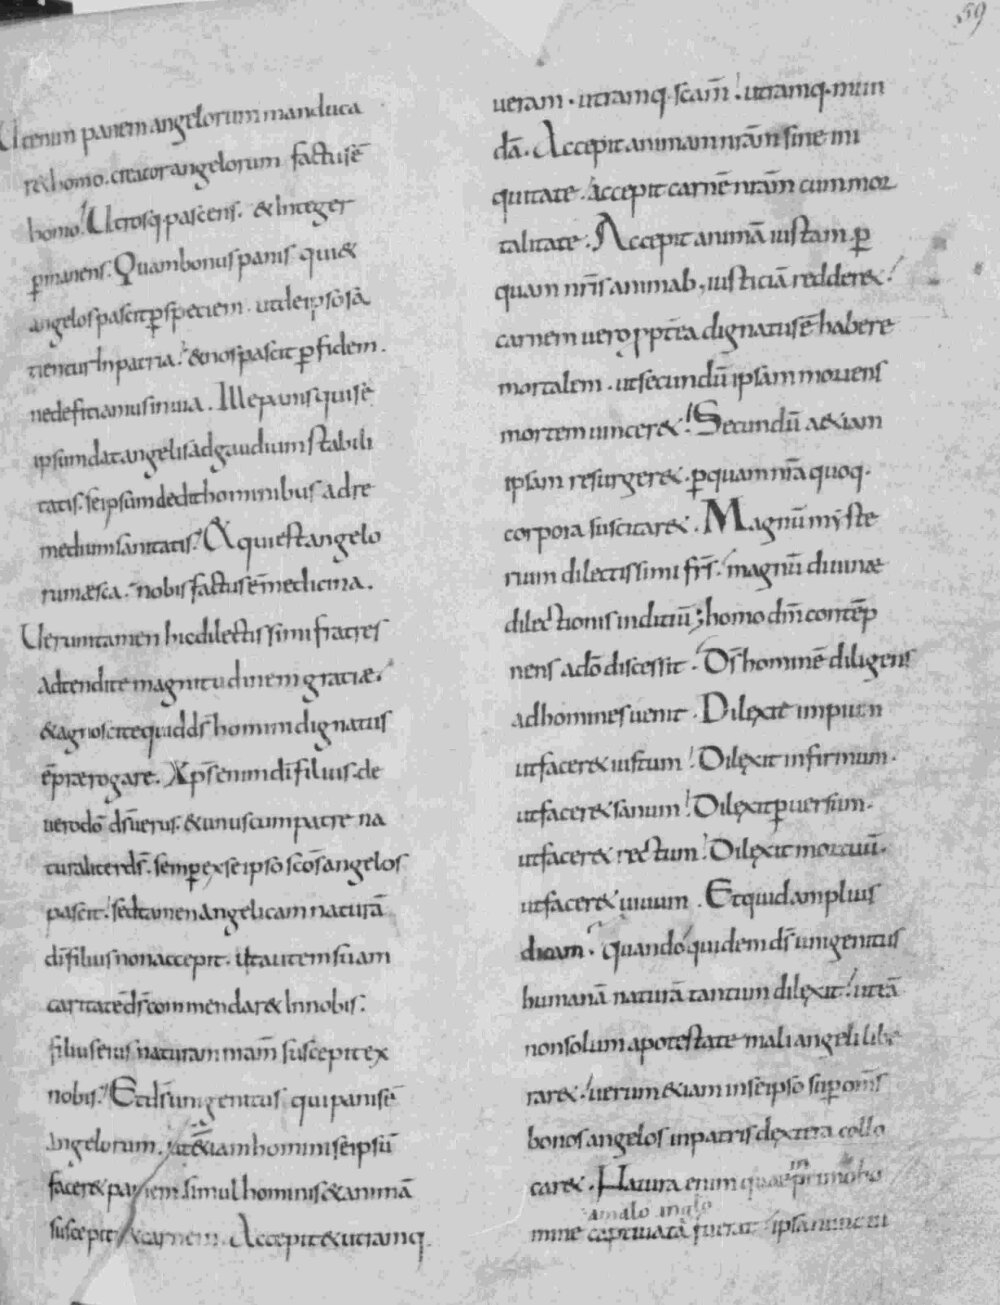 59
Ut enim panem angelorum manduca
r& homo. creator angelorum factus ē
homo. Utrosq; pascens. & Integer
ꝑmanens. Quam bonus panis qui &
angelos pascit ꝑ speciem. ut de ipso sa
tientur In patria. & nos pascit ꝑ fidem.
ne deficiamus in uia. Ille panis qui sē
ipsum dat angelis ad gaudium stabili
tatis. se ipsum dedit hominibus ad re
medium sanitatis. & qui est angelo
rum æsca. nobis factus ē medicina.
Uerumtamen hic dilectissimi fratres
adtendite magnitudinem gratiæ.
& agnoscite quid d̄s homini dignatus
ē prærogare. Xp̄s enim dī filius. de
uero dō d̄s uerus. & unus cum patre na
turaliter d̄s. semꝑ ex se ipso scōs angelos
pascit. sed tamen angelicam naturā
dī filius non accepit. Ut autem suam
caritatē d̄s commendar& In nobis.
filius eius naturam n̄am suscepit ex
nobis. Et d̄s unigenitus qui panis ē
angelorum. ut &iam homini se ipsū
facer& panem. simul hominis & animā
suscepit & carnem. Accepit & utramq.
ueram. utramq. scām. utramq. mun
dā. Accepit animam nr̄am sine ini
quitate. accepit carnē nr̄am cum mor
talitate. Accepit animā iustam. ꝑ
quam nr̄is animab; iusticiā redder&.
carnem uero ꝓptēa dignatus ē habere
mortalem. ut secundū ipsam moriens
mortem uincer&. Secundū a&iam
ipsam resurger&. ꝑ quam nr̄a quoq.
corpora suscitar&. Magnū myste
rium dilectissimi fr̄s. magnū diuinæ
dilectionis inditiū; homo dn̄m contēp
nens a dō discessit. D̄s hominē diligens
ad homines uenit. Dilexit impium
ut facer& iustum. Dilęxit infirmum.
ut facer& sanum. Dilęxit ꝑuersum.
ut facer& rectum. Dilęxit mortuū.
ut facer& uiuum. Et quid amplius
dicam. quando quidem d̄s unigenitus
humanā naturā tantum dilęxit. ut eā
non solum a potestate mali angeli libe
rar&. uerum &iam in se ipso suꝑ om̄s
bonos angelos in patris dęxtera collo
car&. Natura enim quae in primo ho
a malo anglo
mine captiuata fuerat ipsa nunc in